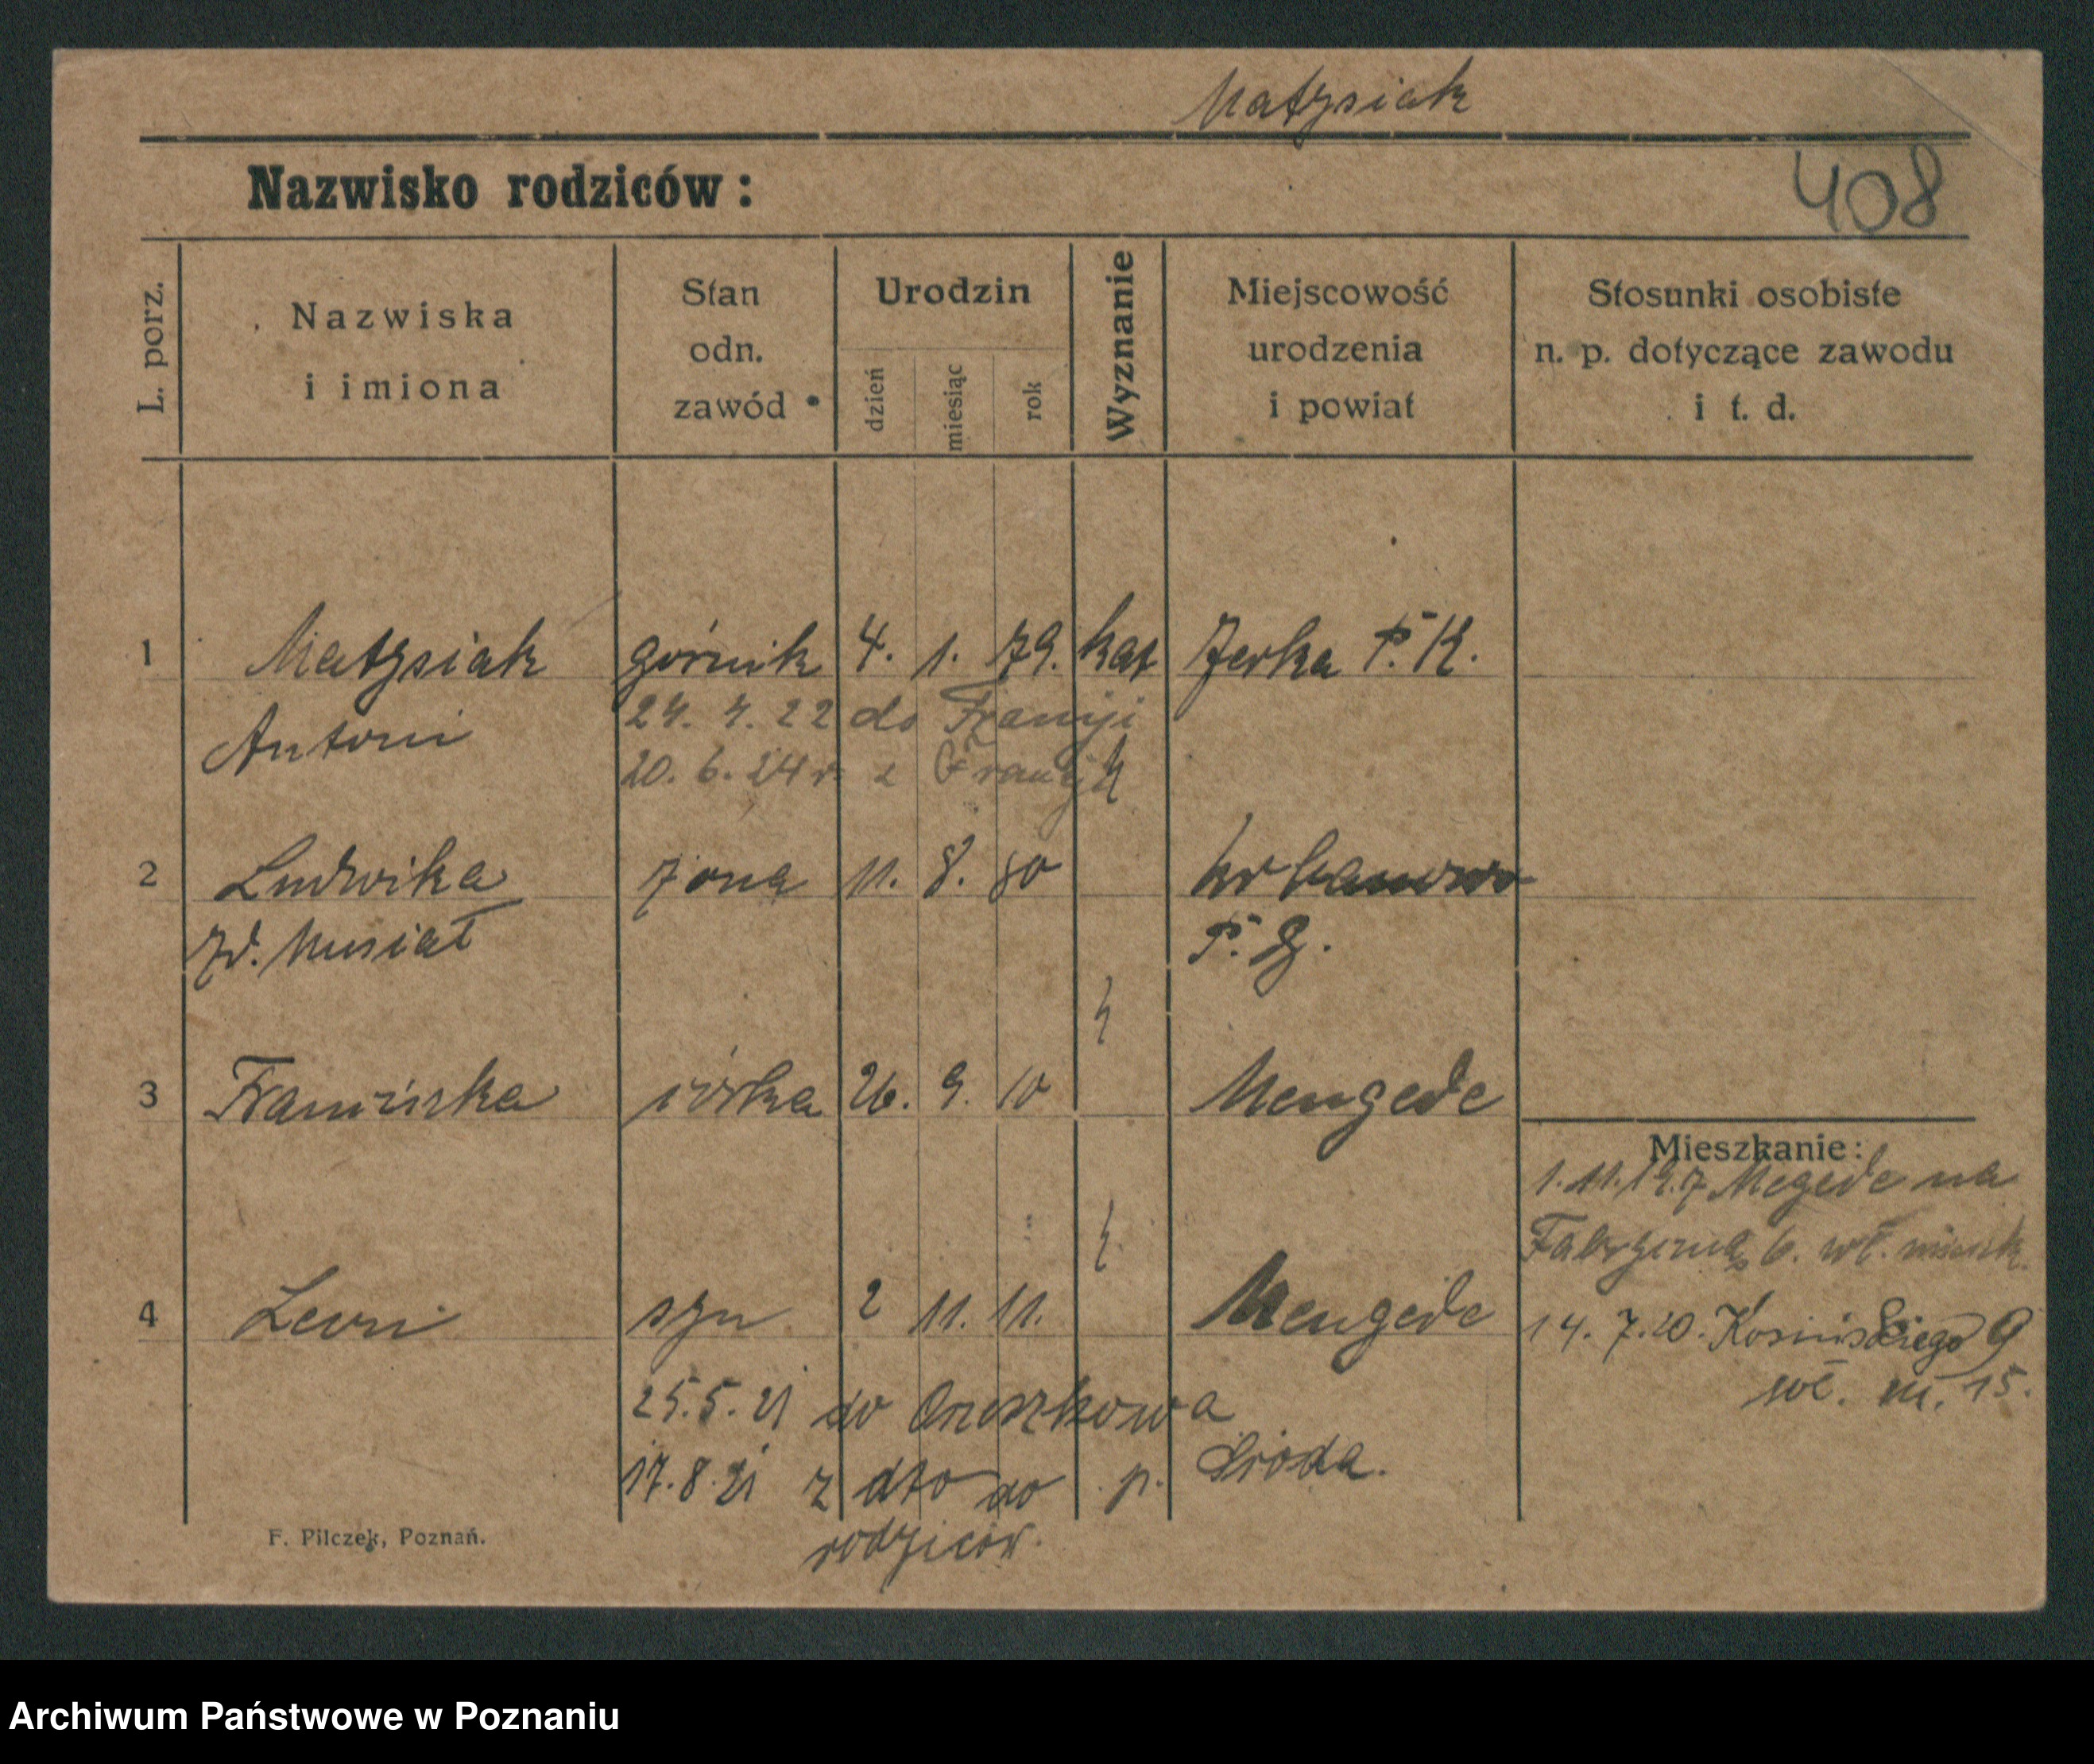 Matysiak
Nazwisko rodziców:
408
L. porz.
Nazwiska
i imiona
Stan
odn.
zawód
Urodzin
dzień
miesiąc
rok
Wyznanie
Miejscowość
urodzenia
i powiat
Stosunki osobiste
n. p. dotyczące zawodu
i t. d.
1 Matysiak górnik 4. 1. 79. kat Jerka P. K.
Antoni
24. 4. 22 do Francji
20. 6. 24 r. z Francji
2 Ludwika żona 11. 8. 80 Urbanowo
zd. Musiał P. G.
3 Franciszka córka 26. 9. 10 Mengede
Mieszkanie:
1. 11. 19. z Megede na
6. wł. mieszk.
4 Leon syn 2 11. 11. Mengede
14. 7. 20. Kosińskiego 9
wł. m. 15.
25. 5. 21 do Oneszkowa
17. 8. 21 z dto do p. Środa.
rodziców.
F. Pilczek, Poznań.
Archiwum Państwowe w Poznaniu